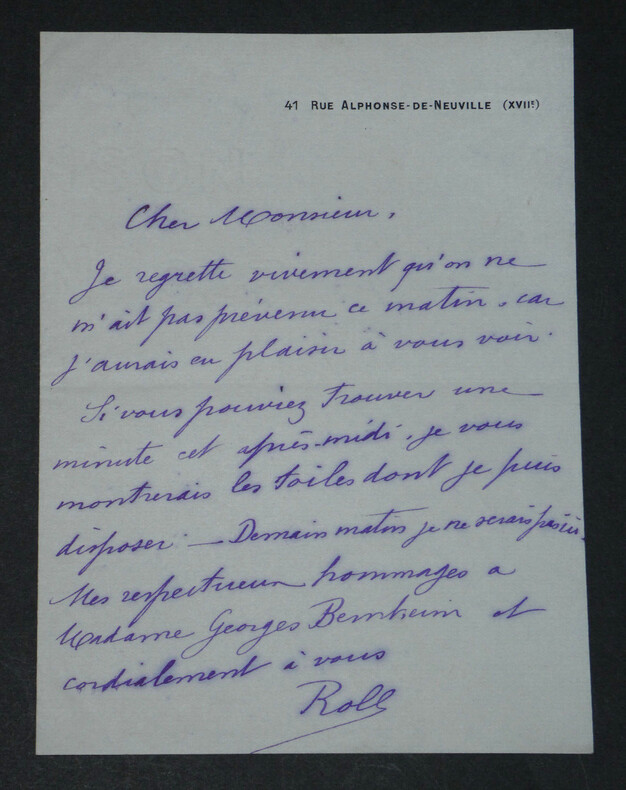 41 RUE ALPHONSE-DE-NEUVILLE (XVIIᵉ)
Cher Monsieur,
Je regrette vivement qu'on ne
m'ait pas prévenu ce matin, car
j'aurais eu plaisir à vous voir.
Si vous pouviez trouver une
minute cet après-midi, je vous
montrerais les toiles dont je puis
disposer. — Demain matin je ne serais pas ici.
Mes respectueux hommages a
Madame Georges Bernheim et
cordialement à vous
Roll